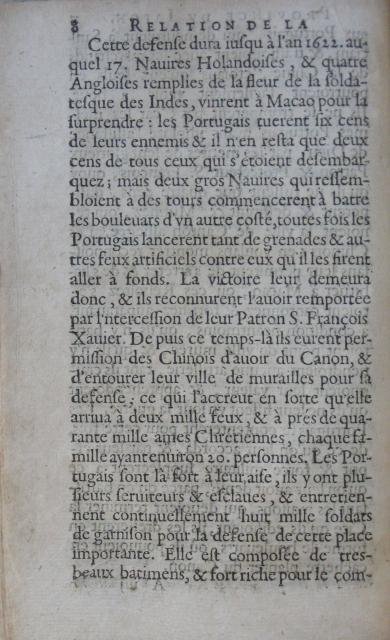 8 RELATION DE LA
Cette defense dura iusqu à l'an 1622. au-
quel 17. Nauires Holandoises, & quatre
Angloises remplies de la fleur de la solda-
tesque des Indes, vinrent à Macao pour la
surprendre : les Portugais tuerent six cens
de leurs ennemis & il n'en resta que deux
cens de tous ceux qui s'étoient desembar-
quez ; mais deux gros Nauires qui ressem-
bloient à des tours commencerent à batre
les bouleuars d'vn autre costé, toutes fois les
Portugais lancerent tant de grenades & au-
tres feux artificiels contre eux qu'il les firent
aller à fonds. La victoire leur demeura
donc, & ils reconnurent l'auoir remportée
par l'ntercession de leur Patron S. François
Xauier. De puis ce temps-là ils eurent per-
mission des Chinois d'auoir du Canon, &
d'entourer leur ville de murailles pour sa
defense ; ce qui l'accreut en sorte qu'elle
arriua à deux mille feux, & à prés de qua-
rante mille ames Chrétiennes, chaque fa-
mille ayant enuiron 20. personnes. Les Por-
tugais sont là fort à leur aise, ils y ont plu-
sieurs seruiteurs & esclaues, & entretien-
nent continuellement huit mille soldats
de garnison pour la defense de cette place
importante. Elle est composée de tres-
beaux batimens, & fort riche pour le com-